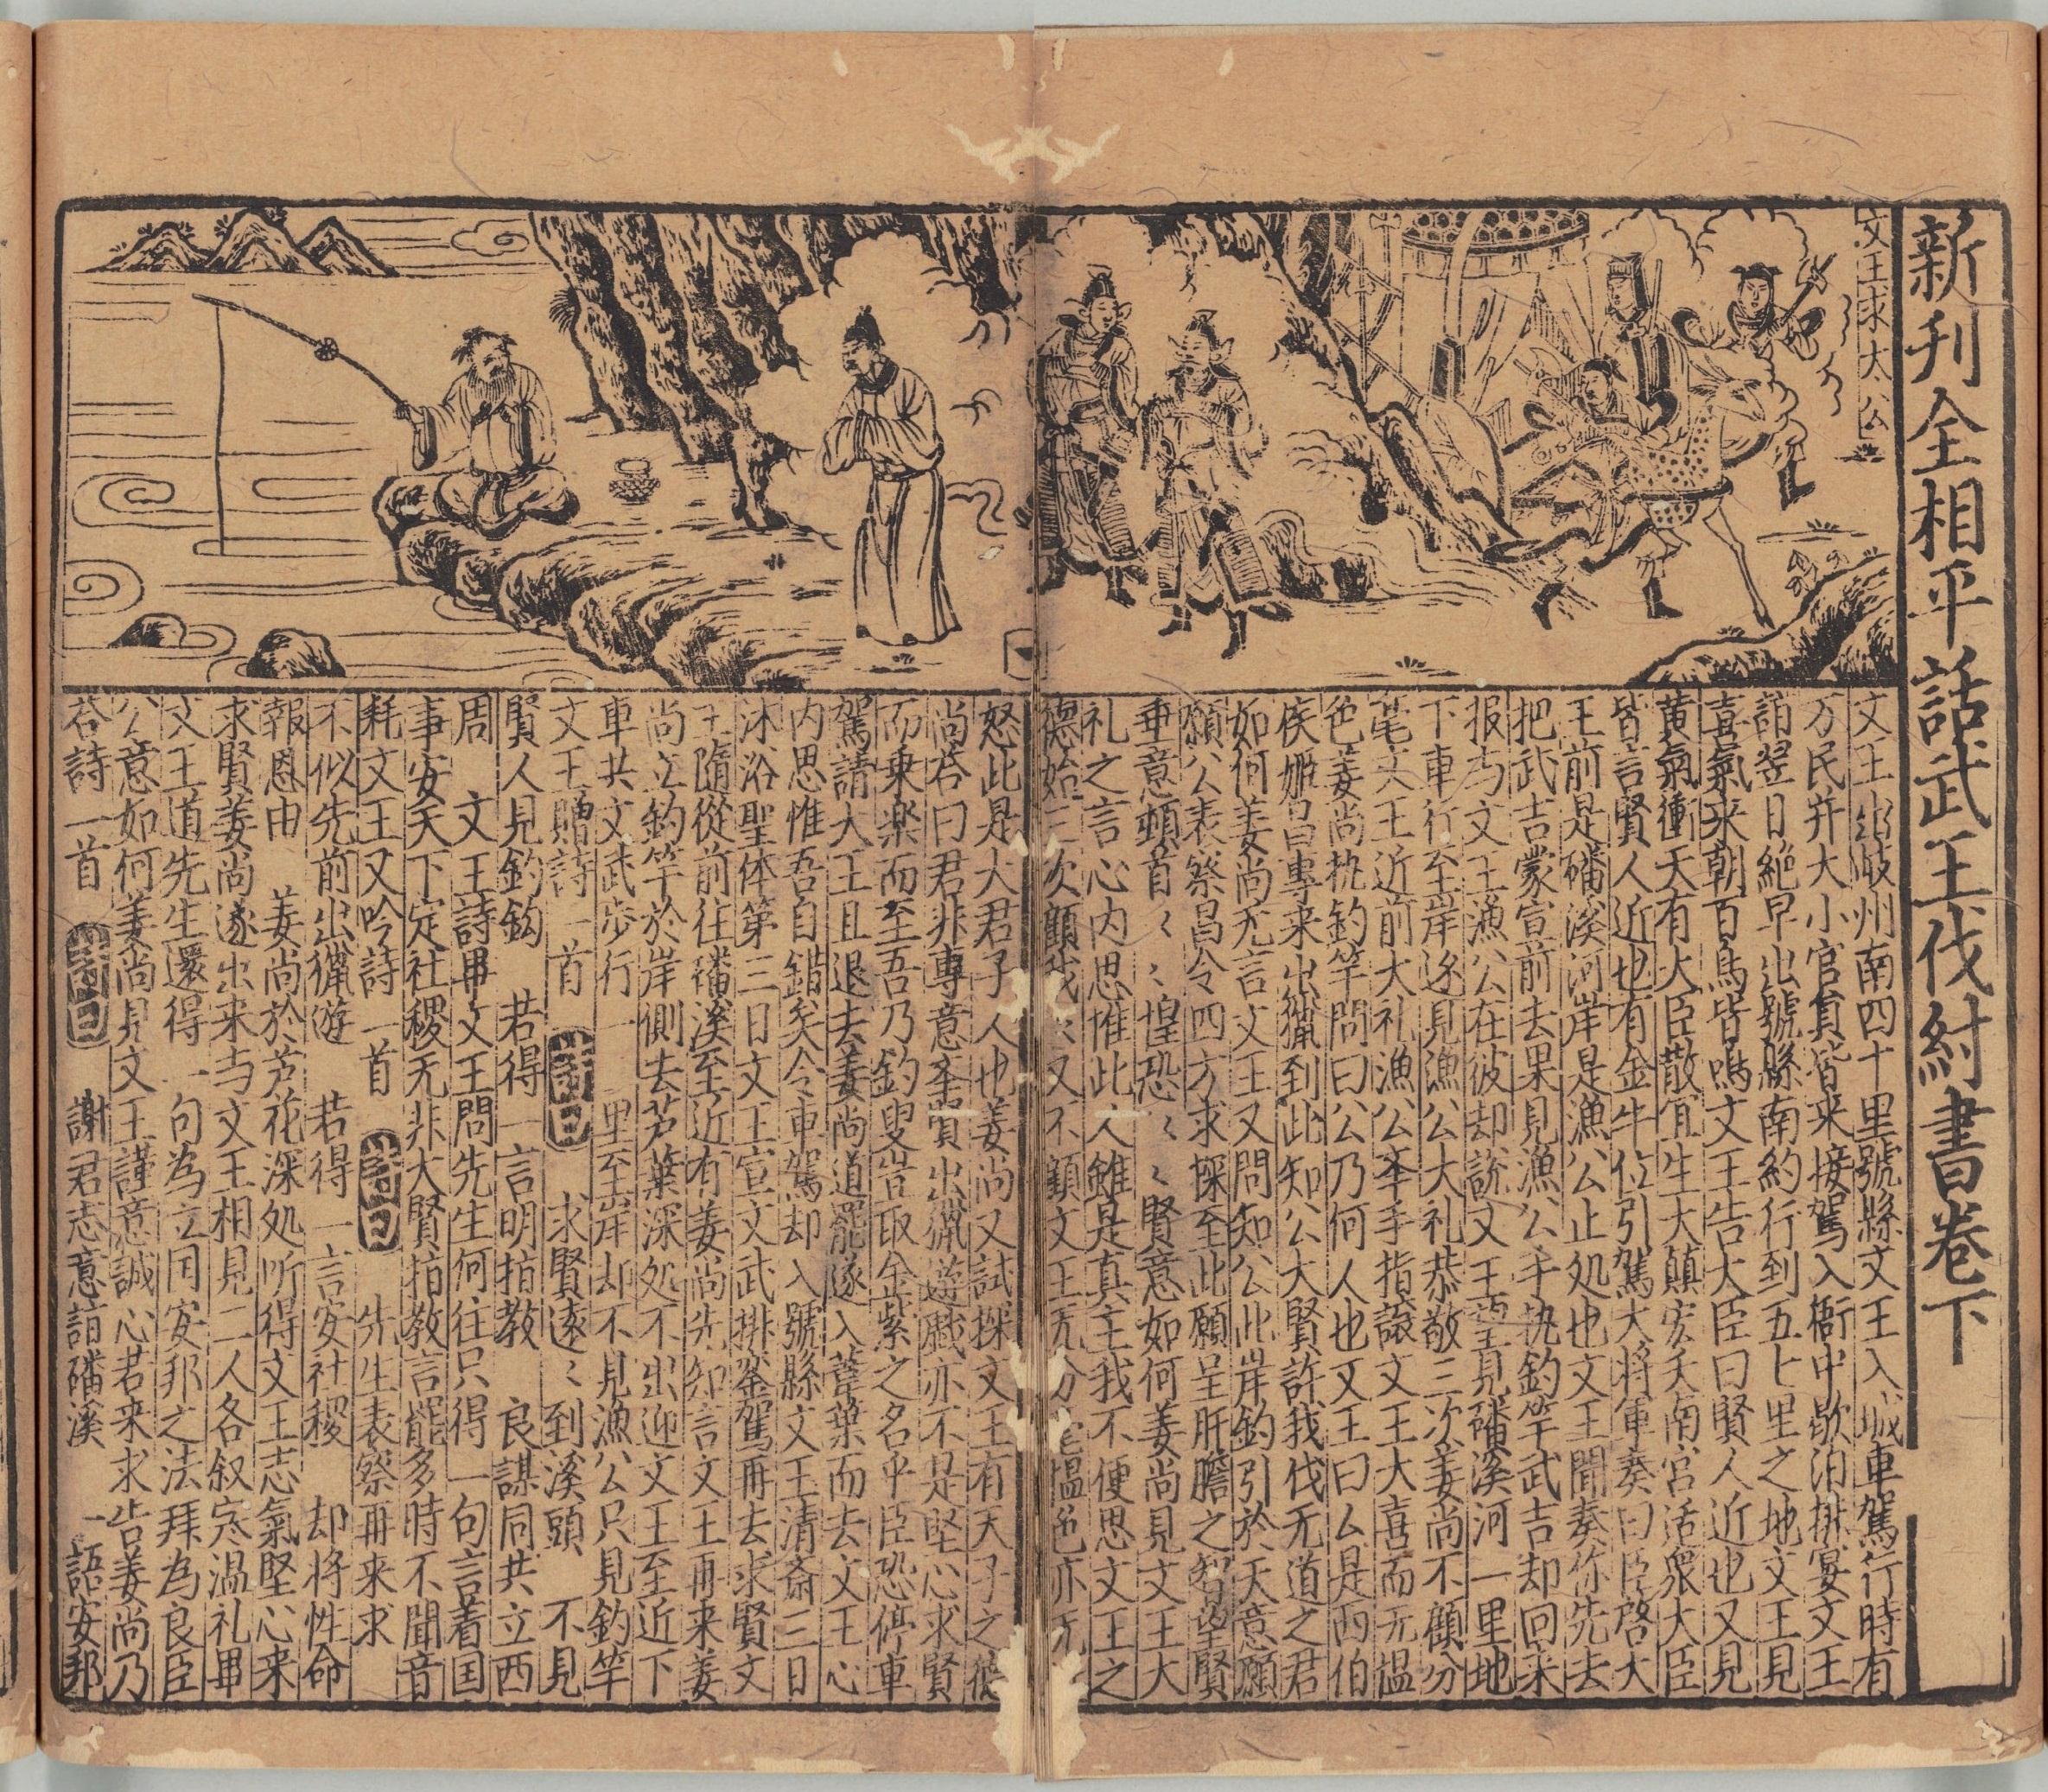 新刋全相平話武王伐紂書卷下
文王求太公
文王出岐州南四十里號縣文王入城車駕行時有
万民并大小官員皆来接駕入衙中歇泊排宴文王
詔翌日絕早出號縣南約行到五七里之地文王見
喜氣来朝百鳥皆鳴文王告大臣曰賢人近也又見
黄氣衝天有大臣散宜生大顛宏夭南宮适衆大臣
皆言賢人近也有金牛位引駕大将軍奏曰臣啓大
王前是磻溪河岸是漁公止処也文王聞奏你先去
把武吉蒙宣前去果見漁公手执釣竿武吉却回来
报与文王漁公在彼却説文王望見磻溪河一里地
下車行至岸邊見漁公大礼恭敬三次姜尚不顧分
毫文王近前大礼漁公举手指讓文王大喜而无愠
色姜尚执釣竿問曰公乃何人也文王曰么是西伯
侯姬昌專来出獵到此知公大賢許我伐无道之君
如何姜尚无言文王又問知公此岸釣引於天意願
願公表察昌令四方求探至此願呈肝膽之智望賢
垂意頓首〻〻惶恐〻〻賢意如何姜尚見文王大
礼之言心内思惟此人雖是真主我不便思文王之
德始三次顧我〻又不顧文王无分毫愠色亦无
怒此是大君子人也姜尚又試探文王有天子之後
尚答曰君非專意奎賓出獵遊戲亦不是坚心求賢
而乗楽而至吾乃釣叟岂取金紫之名乎臣恐停車
駕請大王且退去姜尚道罷遂入葦葉而去文王心
内思惟吾自錯矣令車駕却入號縣文王清斎三日
沐浴聖体第三日文王宣文武排銮駕再去求賢文
王隨從前往磻溪至近有姜尚先知言文王再来姜
尚立釣竿於岸側去芦葉深処不出迎文王至近下
車共文武步行一里至岸却不見漁公只見釣竿
文王贈詩一首　詩曰　求賢遠〻到溪頭　不見
賢人見釣鈎　若得一言明指教　良謀同共立西
周　文王詩畢文王問先生何往只得一句言着国
事安天下定社稷无非大賢指教言罷多時不聞音
耗文王又吟詩一首　詩曰　先生表察再来求
不似先前出獵游　若得一言安社稷　却将性命
報恩由　姜尚於芦花深処听得文王志氣堅心来
求賢姜尚遂出来与文王相見二人各叙寒温礼畢
文王道先生還得一句為立国安邦之法拜為良臣
公意如何姜尚見文王謹意誠心若来求告姜尚乃
答詩一首　詩曰　謝君志意詣磻溪　一語安邦